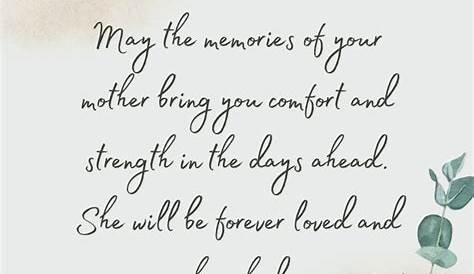 May the memories of your
mother bring you comfort and
strength in the days ahead.
She will be forever loved and